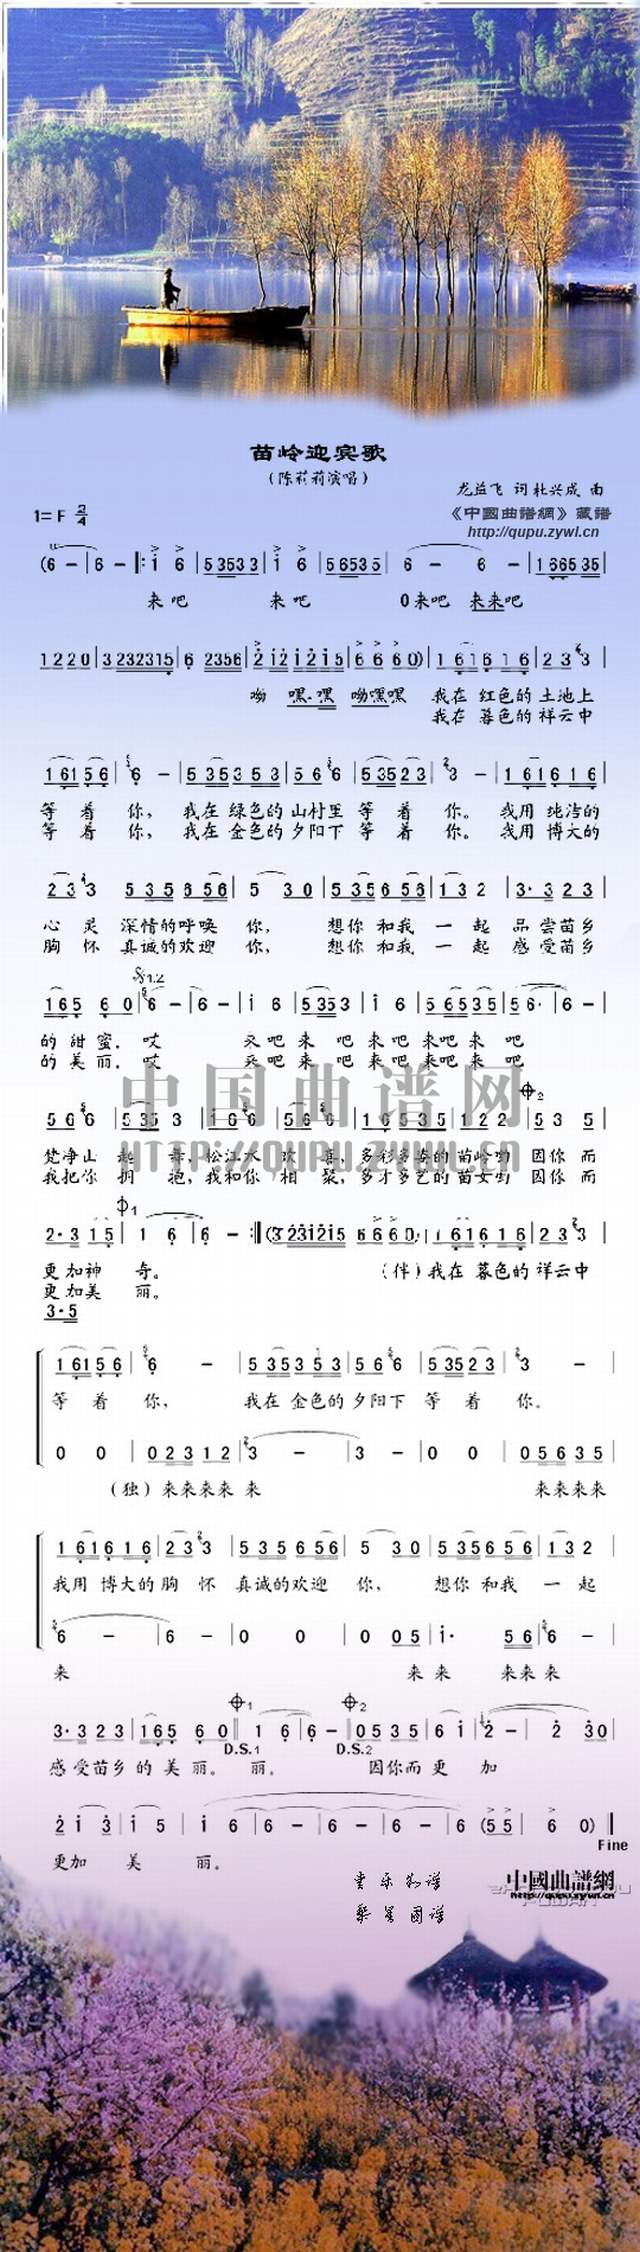 苗岭迎宾歌
（陈莉莉演唱）
龙益飞 词 杜兴成 曲
1= F 2/4
《中國曲谱網》藏谱
http://qupu.zywl.cn
(6 - | 6 - |: i 6 | 5 3 5 3 3 | i 6 | 5 6 5 3 5 | 6 - 6 - | 1 6 6 5 3 5 |
来 吧 来 吧 0 来吧 来来吧
1 2 2 0 | 3 2 3 2 3 1 5 | 6 2 3 5 6 | 2 i 2 i 2 i 5 | 6 6 6 0) | 1 6 1 6 1 6 | 2 3 3 |
呦 嘿.嘿 呦嘿嘿 我在 红色的 土地上
我在 暮色的 祥云中
1 6 1 5 6 | 6 - | 5 3 5 3 5 3 | 5 6 6 | 5 3 5 2 3 | 3 - | 1 6 1 6 1 6 |
等 着 你， 我在 绿色的 山村里 等 着 你。 我用 纯洁的
等 着 你， 我在 金色的 夕阳下 等 着 你。 我用 博大的
2 3 3 5 3 5 6 5 6 | 5 3 0 | 5 3 5 6 5 6 | 1 3 2 | 3· 3 2 3 |
心 灵 深情的呼唤 你， 想你 和我 一 起 品 尝苗乡
胸 怀 真诚的欢迎 你， 想你 和我 一 起 感 受苗乡
1 6 5 6 0 | 6 - | 6 - | i 6 | 5 3 5 3 | i 6 | 5 6 5 3 5 | 5 6· | 6 - |
𝄋1.2
的 甜蜜。哎 来 吧 来 吧 来 吧 来吧 来 吧
的 美丽。哎 来 吧 来 吧 来 吧 来吧 来 吧
中国曲谱网
HTTP://QUPU.ZYWL.CN
2
5 6 6 | 5 3 5 3 | i 6 6 | 5 6 6 | 1 6 5 3 5 | 1 2 2 | 5 3 5 |
梵净山 起 舞，松江水 欢 喜，多彩多姿的 苗岭呦 因你 而
我把你 拥 抱，我和你 相 聚，多才多艺的 苗女呦 因你 而
1
2· 3 1 5 | 1 6 | 6 - :|| (3 2 3 i 2 i 5 | 6 6 6 0) | 1 6 1 6 1 6 | 2 3 3 |
更加神 奇。 （伴）我在 暮色的 祥云中
更加美 丽。
3· 5
1 6 1 5 6 | 6 - | 5 3 5 3 5 3 | 5 6 6 | 5 3 5 2 3 | 3 - |
等 着 你， 我在 金色的 夕阳下 等 着 你。
0 0 | 0 2 3 1 2 | 3 - | 3 - | 0 0 | 0 5 6 3 5 |
（独）来来来来 来 来来来来
1 6 1 6 1 6 | 2 3 3 | 5 3 5 6 5 6 | 5 3 0 | 5 3 5 6 5 6 | 1 3 2 |
我用 博大的 胸 怀 真诚的欢迎 你， 想你 和我 一 起
6 - | 6 - | 0 0 | 0 0 5 | i· 5 6 | 6 - |
来 来 来 来来 来
1 2
3· 3 2 3 | 1 6 5 6 0 || 1 6 | 6 - || 0 5 3 5 | 6 i | 2 - | 2 3 0 |
D.S.1 D.S.2
感 受苗乡 的 美丽。 丽。 因你而 更 加
2 i 3 | i 5 | i 6 | 6 - | 6 - | 6 - | 6 (5 5 | 6 0) ||
Fine
更加 美 丽。
中國曲譜網
http://qupu.zywl.cn